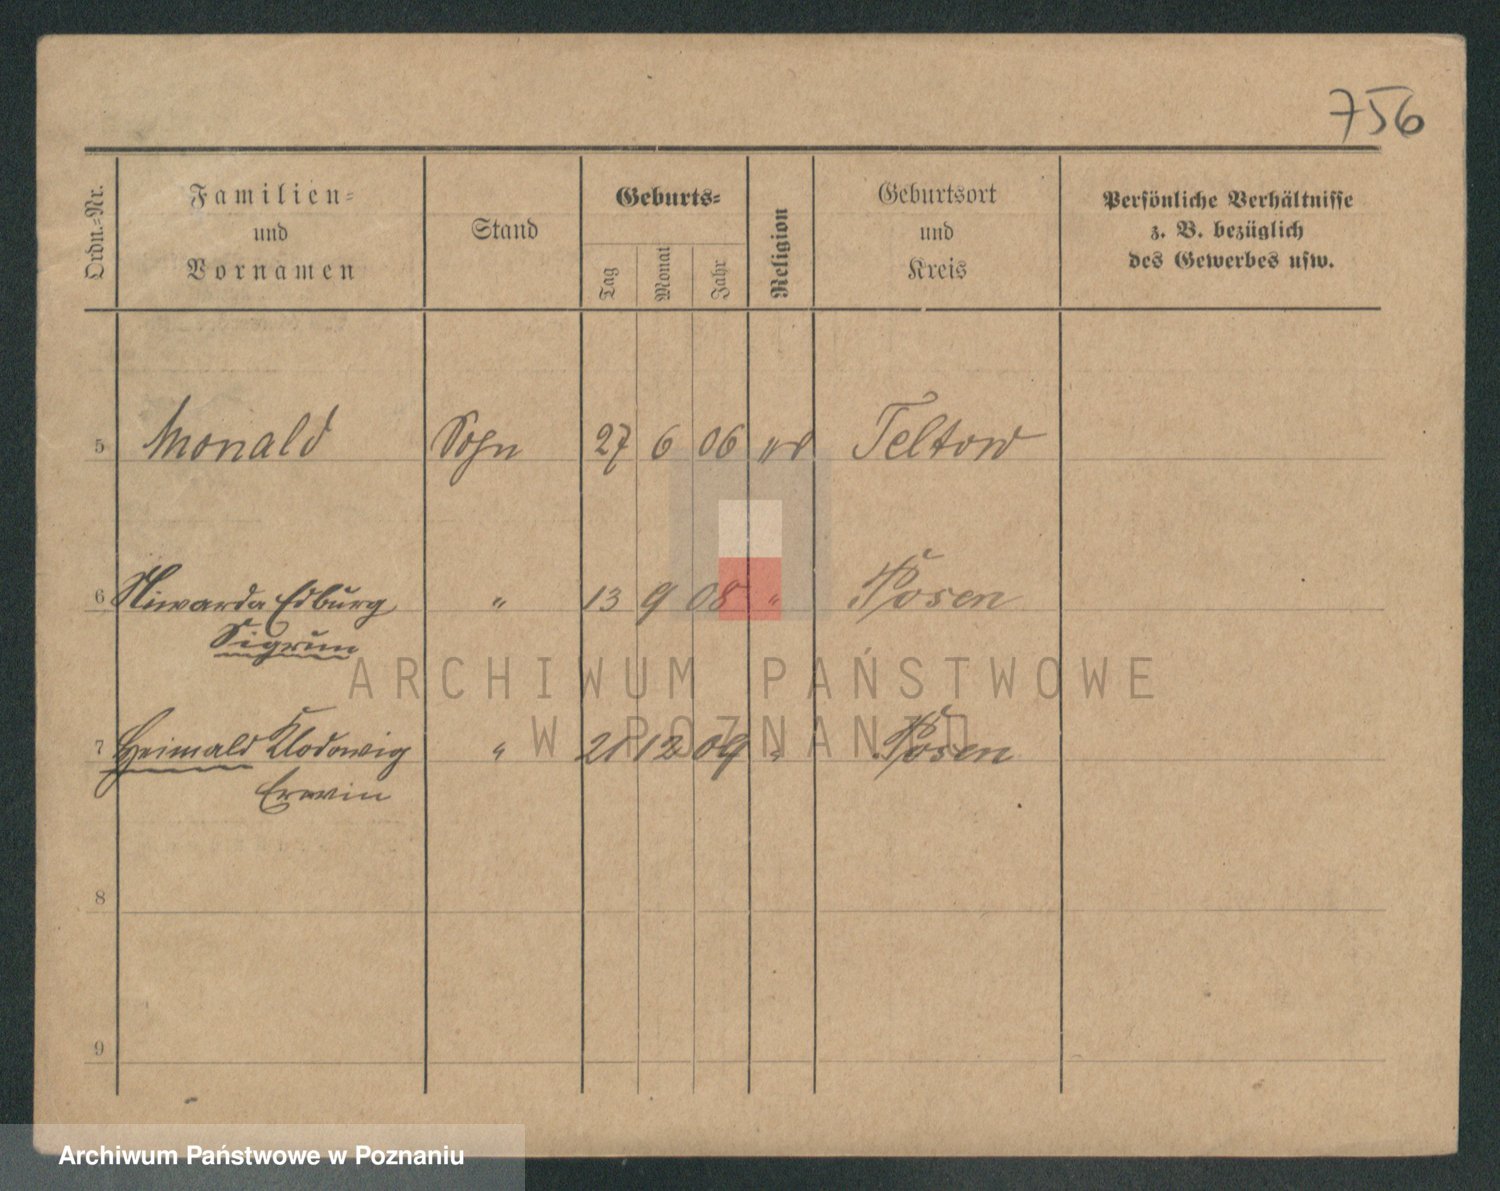 756
Ordn.-Nr.
Familien-
und
Vornamen
Stand
Geburts-
Tag
Monat
Jahr
Religion
Geburtsort
und
Kreis
Persönliche Verhältnisse
z. B. bezüglich
des Gewerbes usw.
5 Monald Sohn 27 6 06 Teltow
6 Edburg " 13 9 08 " Posen
Sigrun
7 Heimald Klodowig " 21 12 09 " Posen
Erwin
8
9
ARCHIWUM PAŃSTWOWE
W POZNANIU
Archiwum Państwowe w Poznaniu